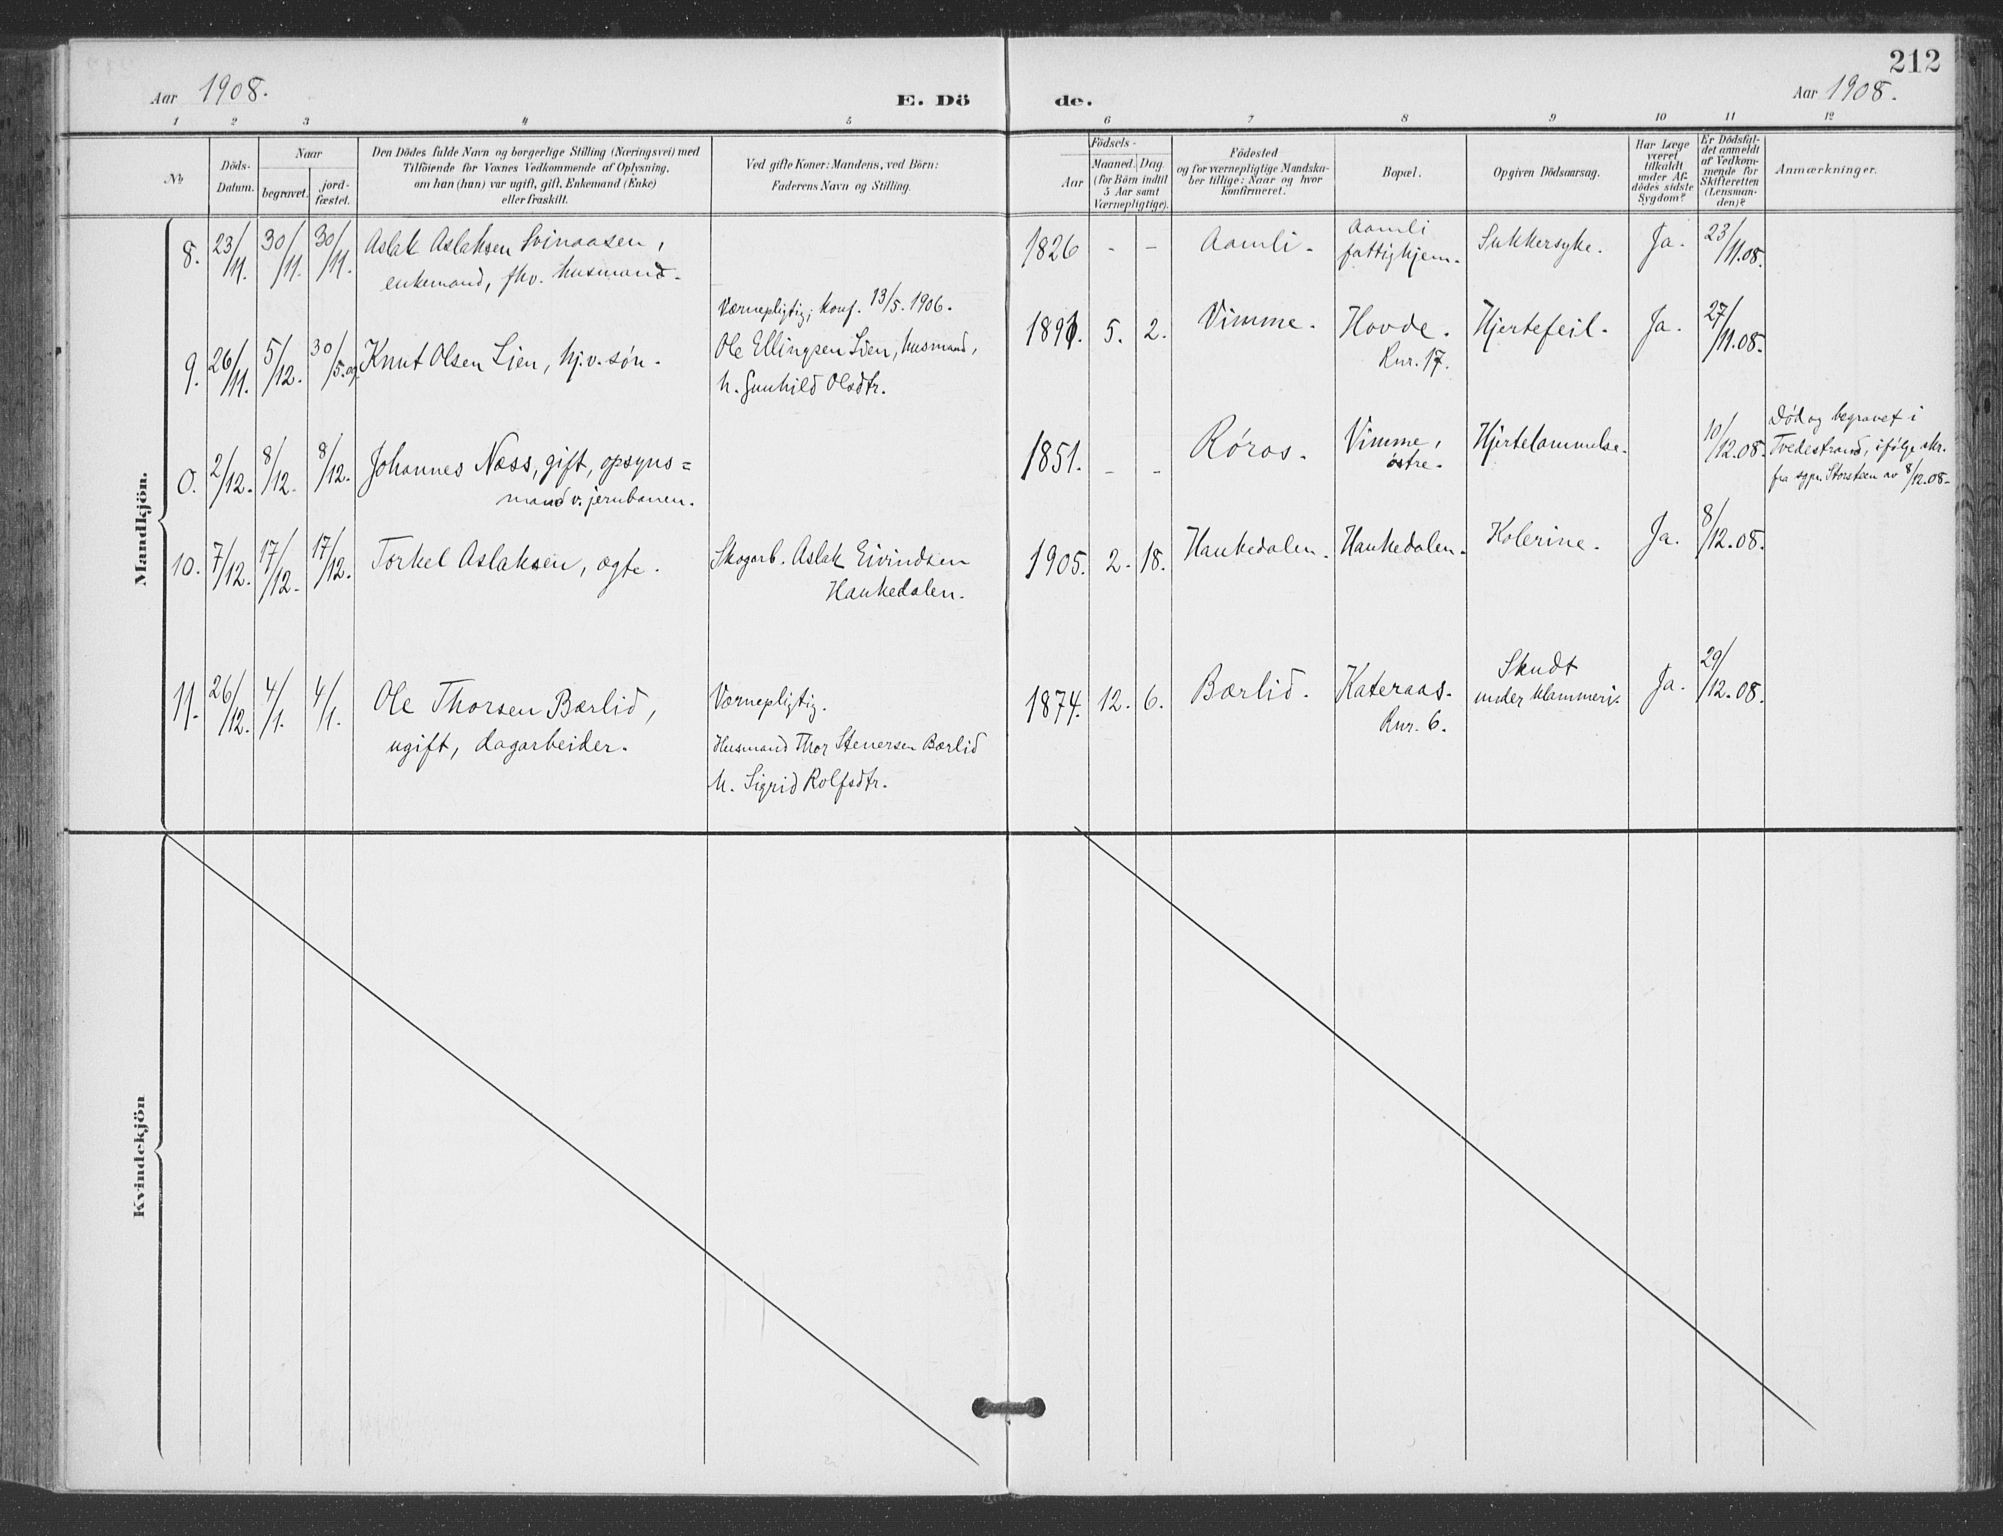 212
Aar 1908.
E. Dö
de.
Aar 1908.
1 2 3 4 5 6 7 8 9 10 11 12
No
Döds-
Datum.
Naar
begravet.
jord-
fæstet.
Den Dödes fulde Navn og borgerlige Stilling (Næringsvei) med
Tilföiende for Voxnes Vedkommende af Oplysning,
om han (hun) var ugift, gift, Enkemand (Enke)
eller fraskilt.
Ved gifte Koner: Mandens, ved Börn:
Faderens Navn og Stilling.
Födsels-
Aar
Maaned. Dag.
(for Börn indtil
5 Aar samt
Værnepligtige).
Födested
og for værnepligtige Mandska-
ber tillige: Naar og hvor
konfirmeret.
Bopæl.
Opgiven Dödsaarsag.
Har Læge
været
tilkaldt
under Af-
dödes sidste
Sygdom?
Er Dödsfal-
det anmeldt
af Vedkom-
mende for
Skifteretten
(Lensman-
den)?
Anmærkninger.
Mandkjön.
8. 23/11. 30/11. 30/11. Aslak Aslaksen Svinaasen,
enkemand, fhv. husmand.
1826 - - Aamli. Aamli
fattighjem. Sukkersyke. Ja. 23/11.08.
9. 26/11. 5/12. 30/5.09. Knut Olsen Lien, hj.v. søn.
Værnepligtig; konf. 13/5. 1906.
Ole Ellingsen Lien, husmand,
h. Gunhild Olsdtr.
1891. 5. 2. Vimme. Hovde.
Rnr. 17. Hjertefeil. Ja. 27/11.08.
0. 2/12. 8/12. 8/12. Johannes Næss, gift, opsyns=
mand v. jernbanen.
1851. - - Røros. Vimme,
østre. Hjertelammelse. 10/12.08.
Død og begravet i
Tvedestrand, ifølge skr.
fra sgpr. Storsteen av 8/12.08.
10. 7/12. 17/12. 17/12. Torkel Aslaksen, ægte.
Skogarb. Aslak Eivindsen
Haukedalen.
1905. 2. 18. Haukedalen. Haukedalen. Kolerine. Ja. 8/12.08.
11. 26/12. 4/1. 4/1. Ole Thorsen Bærlid,
ugift, dagarbeider.
Værnepligtig.
Husmand Thor Stenersen Bærlid
h. Sigrid Rolfsdtr.
1874. 12. 6. Bærlid. Kateraas.
Rnr. 6. Skudt
under klammeri. Ja. 29/12.08.
Kvindekjön